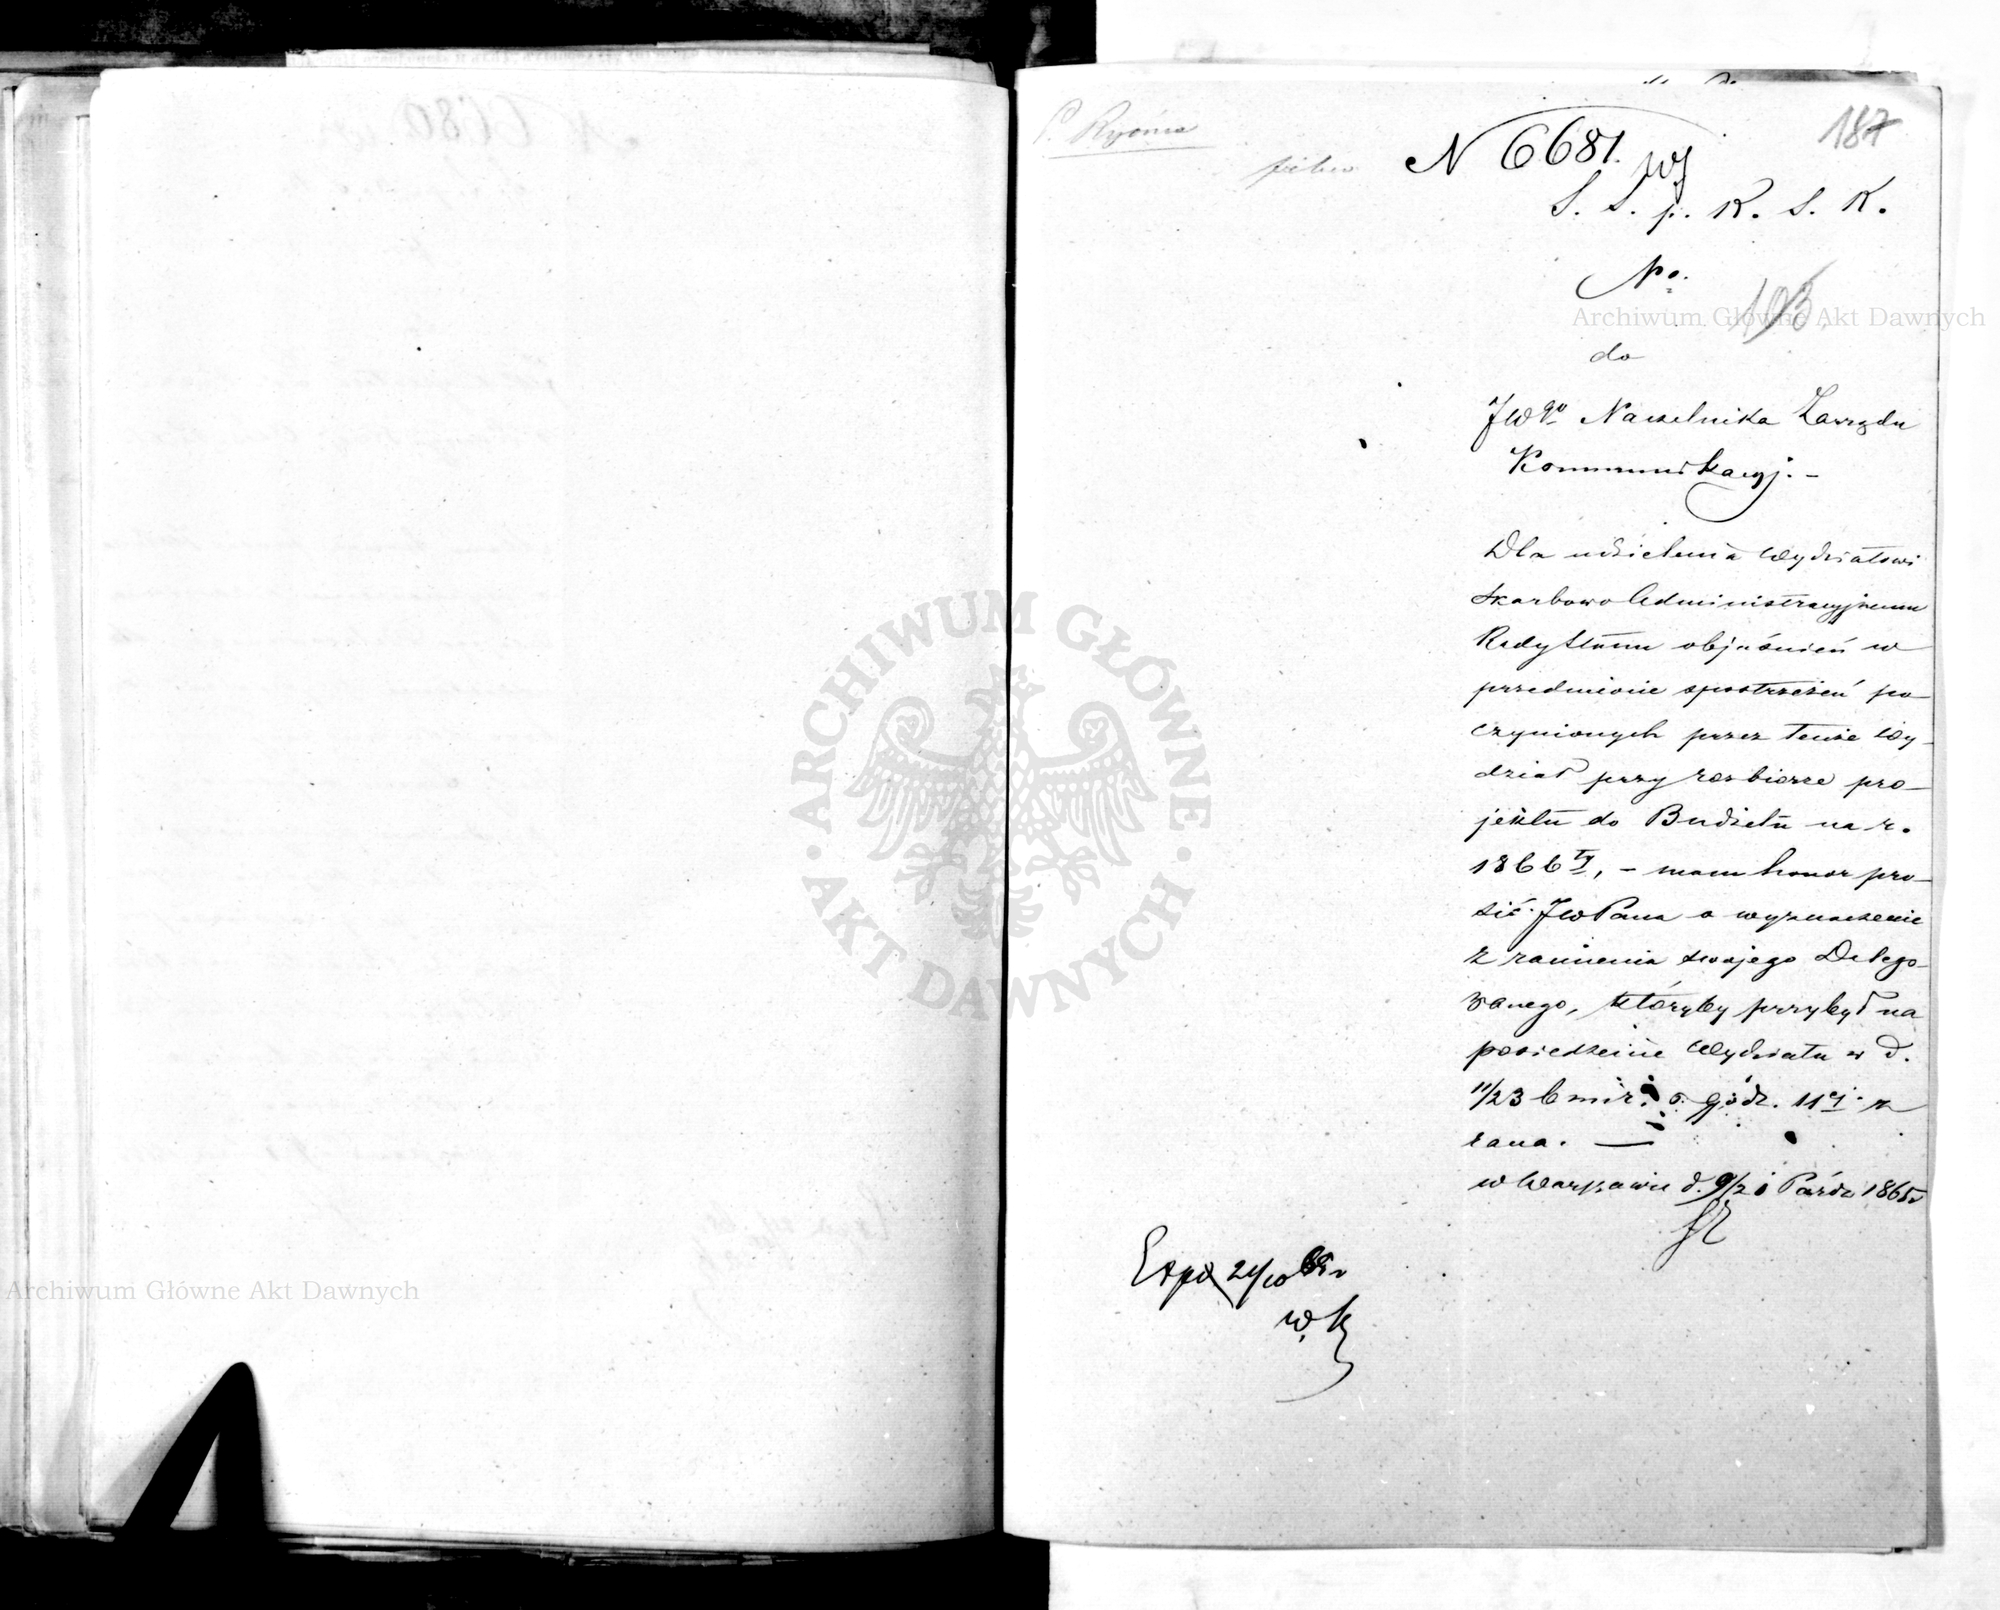 187
pilne
N 6681.
S. S. p. K. S. K.
No.
193
do
JWgo Naczelnika Zarządu
Kommunikacyj. -
Dla udzielenia Wydziałowi
Skarbowo Administracyjnemu
Rady Stanu objaśnień w
przedmiocie spostrzeżeń po-
czynionych przez tenże Wy-
dział przy rozbiorze pro-
jektu do Budżetu na r.
1866ty, - mam honor pro-
sić JWPana o wyznaczenie
z ramienia swojego Delego-
wanego, któryby przybył na
posiedzenie Wydziału w d.
11/23 b m i r. o godz. 11ej z
rana. —
w Warszawie d. 9/21 Paźdz 1865r
Exp 21/10 65r
Archiwum Główne Akt Dawnych
Archiwum Główne Akt Dawnych
ARCHIWUM GŁÓWNE · AKT DAWNYCH ·